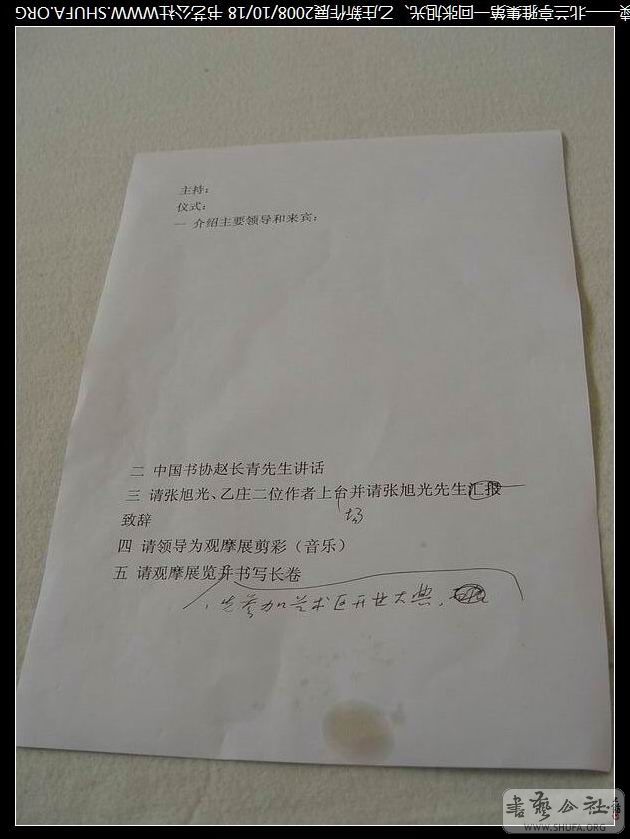 读——北兰亭雅集第一回张旭光、乙庄新作展2008/10/18 书艺公社WWW.SHUFA.ORG
主持：
仪式：
一 介绍主要领导和来宾：
二 中国书协赵长青先生讲话
三 请张旭光、乙庄二位作者上台并请张旭光先生汇报
场
致辞
四 请领导为观摩展剪彩（音乐）
五 请观摩展览并书写长卷
先参加艺术区开业大典，
書藝公社
WWW.SHUFA.ORG